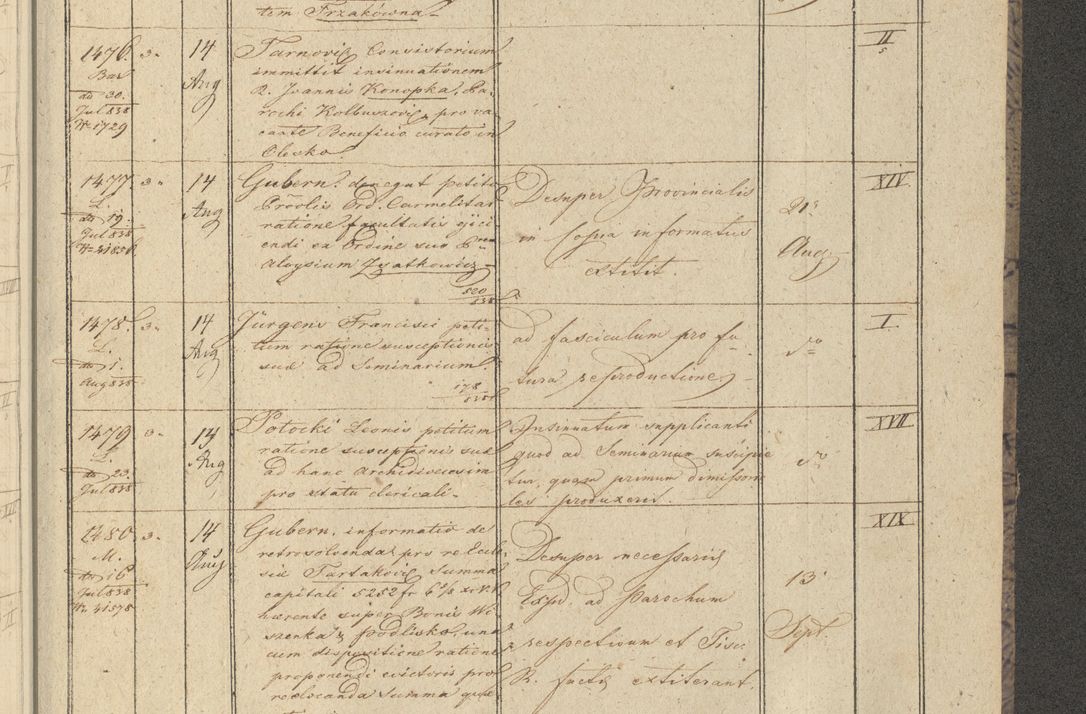 tem Frzakówna.
1476. 3. 14
Aug
Bar
dto 30.
Jul 838
No 1729
Tarnovie Consistorium
immittit insinuationem
R. Joannis Konopka, Pa-
rochi Kolbuszovie, pro va-
cante Beneficio curato in
Olesko.
II
5
1477. 3. 14
Aug
L.
dto 19.
Jul 838
Gubern. denegat petito
Provlis Ord. Carmelitar
ratione facultatis ejici-
endi ex Ordine suo
Aloysium Zyatkowicz
820
838
Desuper Provincialis
in Copia informatus
extitit.
21
Aug
XIV
1478. 3. 14
Aug
L.
dto 1.
Aug 838
Jürgens Francisci peti-
tum ratione susceptionis
sui ad Seminarium.
178
838
ad fasciculum pro fu-
tura reproductione.
dto
I.
1479 3. 14
Aug
L.
dto 23.
Jul 838
Potocki Leonis petitum
ratione susceptionis sui
ad hanc Archidioecesim
pro statu clericali.
Insinuatum supplicanti
quod ad Seminarium suscipie
tur, quam primum dimissori
les produxerit.
dto
XVII
1480 3. 14
Aug
M.
dto 16
Jul 838
No 41578
Gubern. informatio de
retrosolvenda pro re Eccle-
siæ Tartakovie Summa
capitali 5252 fr
hærente super Bonis Wi-
szenka & Podlisko, una
cum dispositione ratione
proponendi evictoris pro
relocanda Summa quæ
Desuper necessariæ
Exp. ad Parochum
respectivum et Fisc.
R. factæ extiterant.
13
Sept.
XIX